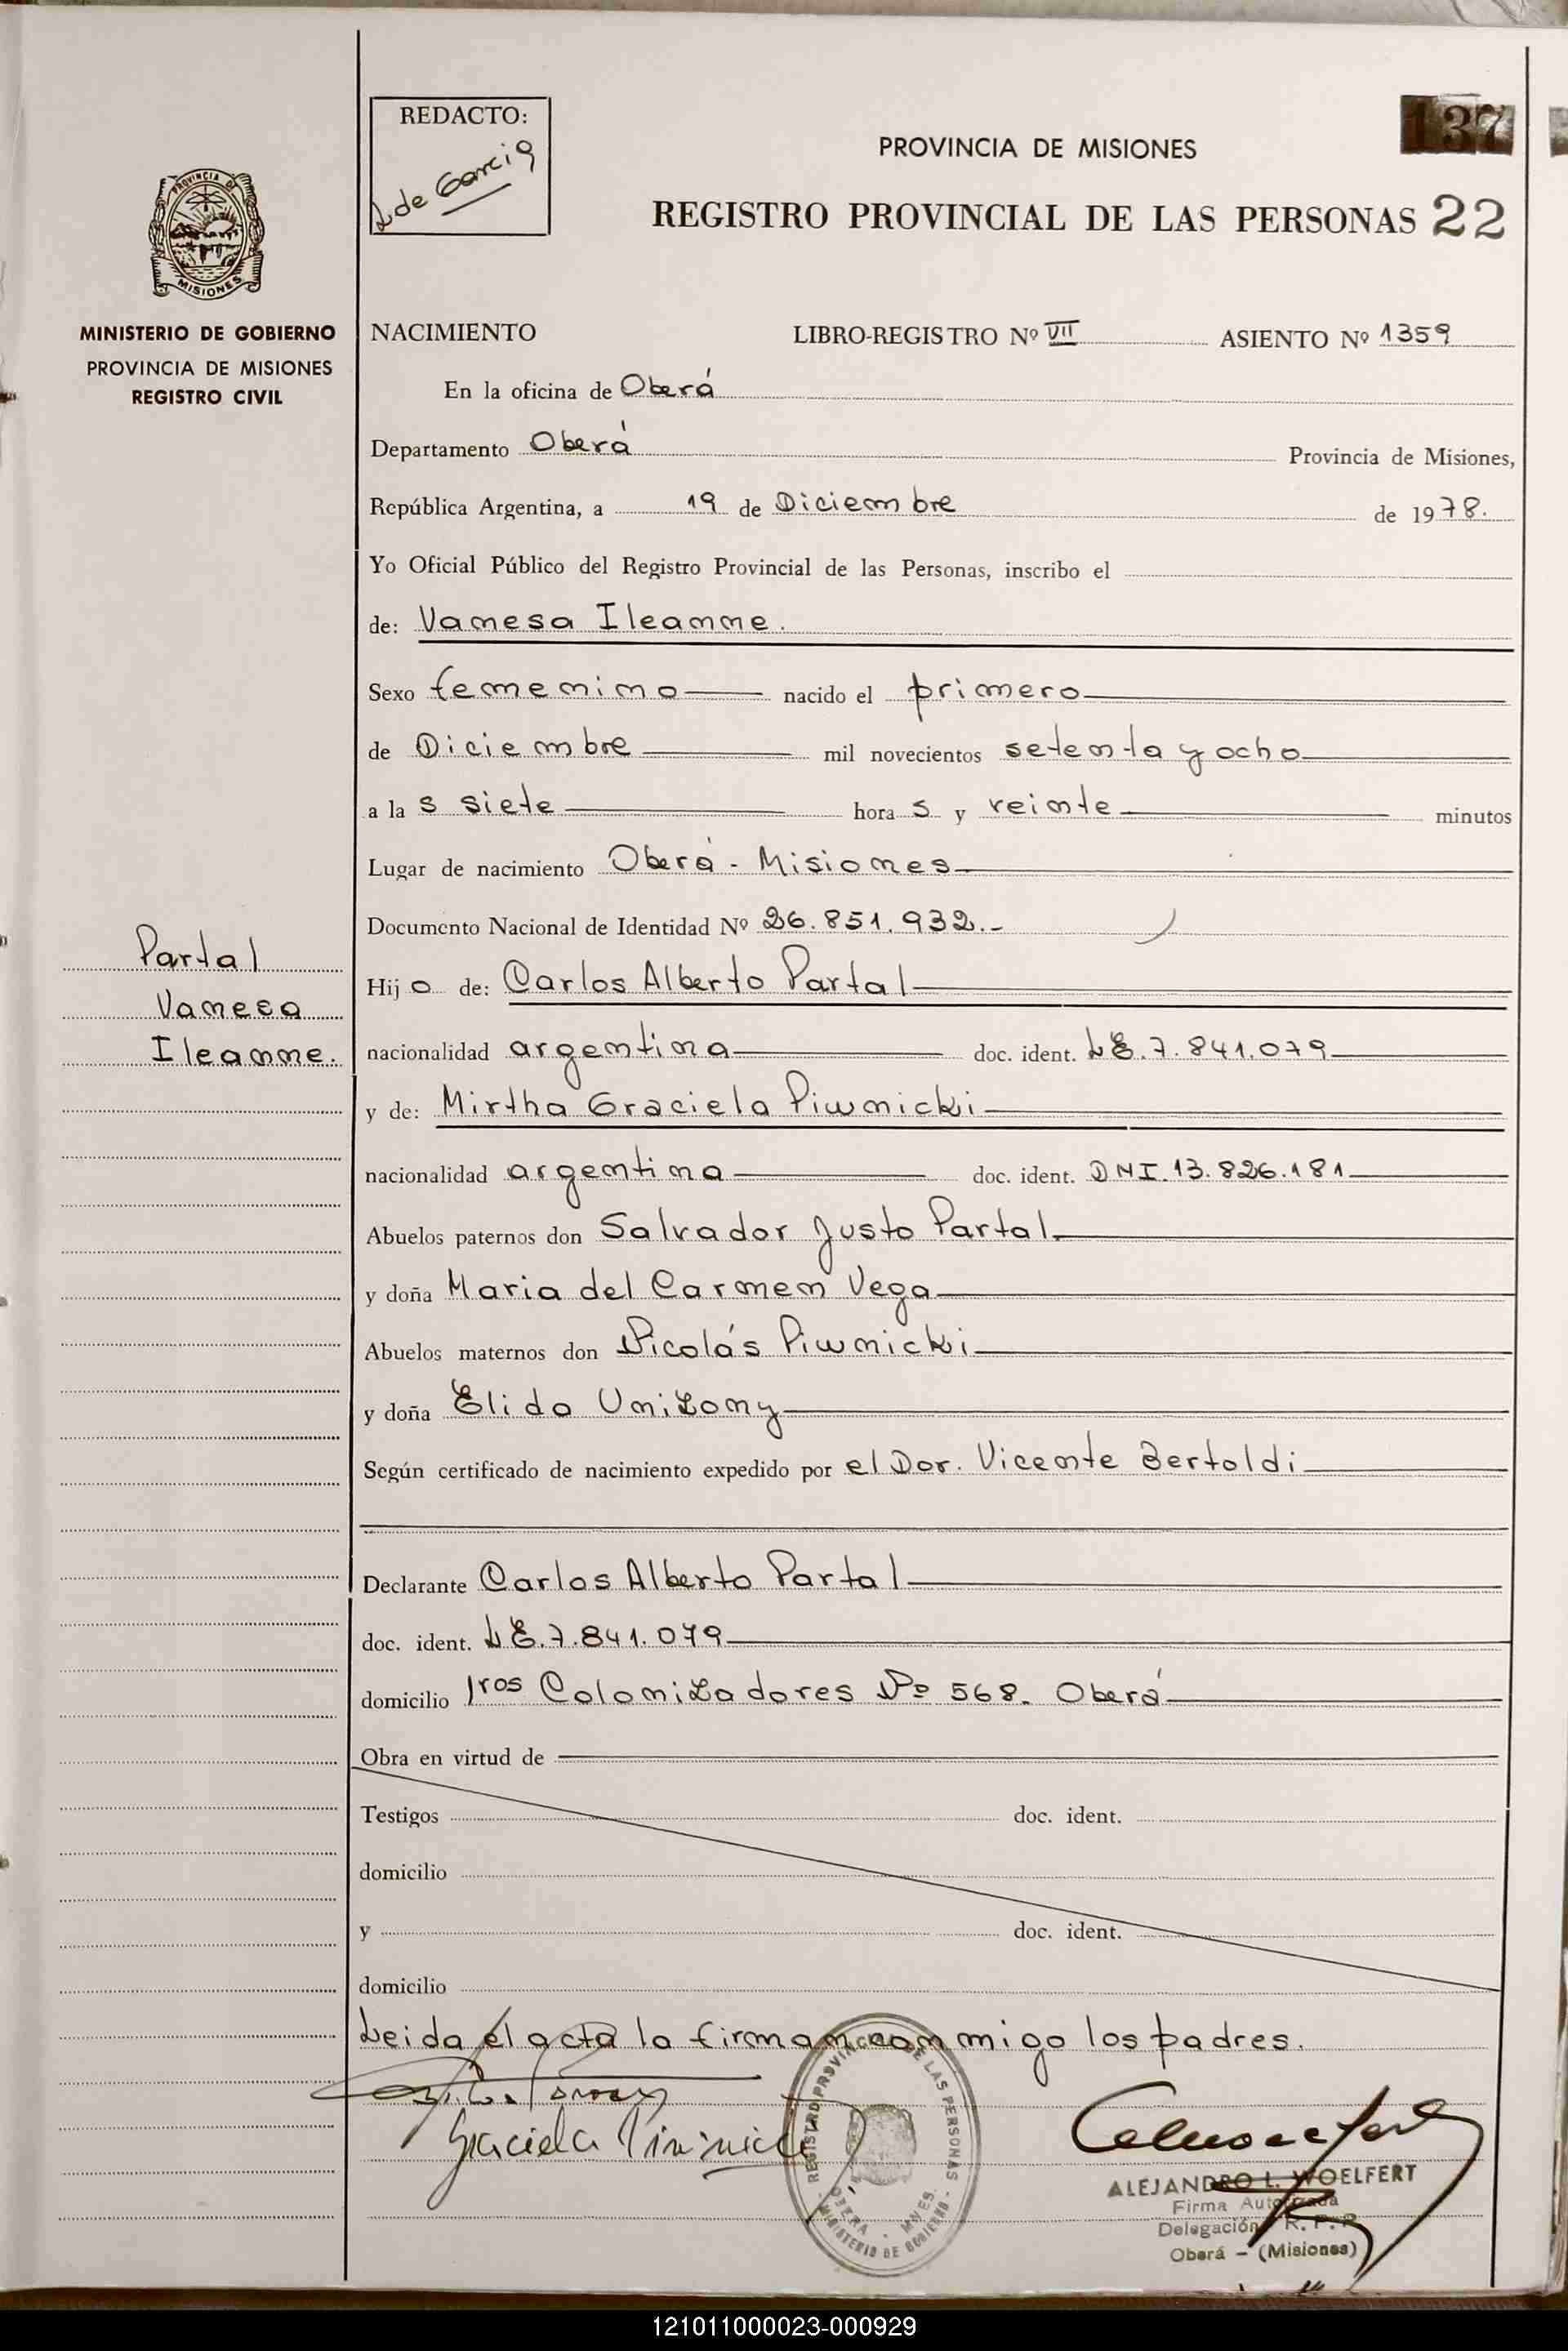 REDACTO:
L de Garcia
137
PROVINCIA DE MISIONES
REGISTRO PROVINCIAL DE LAS PERSONAS 22
PROVINCIA DE
MISIONES
MINISTERIO DE GOBIERNO
PROVINCIA DE MISIONES
REGISTRO CIVIL
NACIMIENTO LIBRO-REGISTRO Nº VII ASIENTO Nº 1359
En la oficina de Oberá
Departamento Oberá Provincia de Misiones,
República Argentina, a 19 de Diciembre de 1978.
Yo Oficial Público del Registro Provincial de las Personas, inscribo el
de: Vanesa Ileanne.
Sexo femenino nacido el primero
de Diciembre mil novecientos setenta y ocho
a la s siete hora s y veinte minutos
Lugar de nacimiento Oberá - Misiones
Documento Nacional de Identidad Nº 26.851.932.-
Partal
Vanesa
Ileanne.
Hij o de: Carlos Alberto Partal
nacionalidad argentina doc. ident. LE.7.841.079
y de: Mirtha Graciela Piwnicki
nacionalidad argentina doc. ident. DNI.13.826.181
Abuelos paternos don Salvador Justo Partal
y doña Maria del Carmen Vega
Abuelos maternos don Nicolás Piwnicki
y doña Elida Unizony
Según certificado de nacimiento expedido por el Dor. Vicente Bertoldi
Declarante Carlos Alberto Partal
doc. ident. LE.7.841.079
domicilio 1ros Colonizadores Nº 568. Oberá
Obra en virtud de
Testigos doc. ident.
domicilio
y doc. ident.
domicilio
Leida el acta la firman conmigo los padres.
Graciela Piwnicki
REGISTRO PROVINCIAL DE LAS PERSONAS
OBERA - MNES.
MINISTERIO DE GOBIERNO
ALEJANDRO L. WOELFERT
Firma Autorizada
Delegación R. P. P.
Oberá - (Misiones)
121011000023-000929